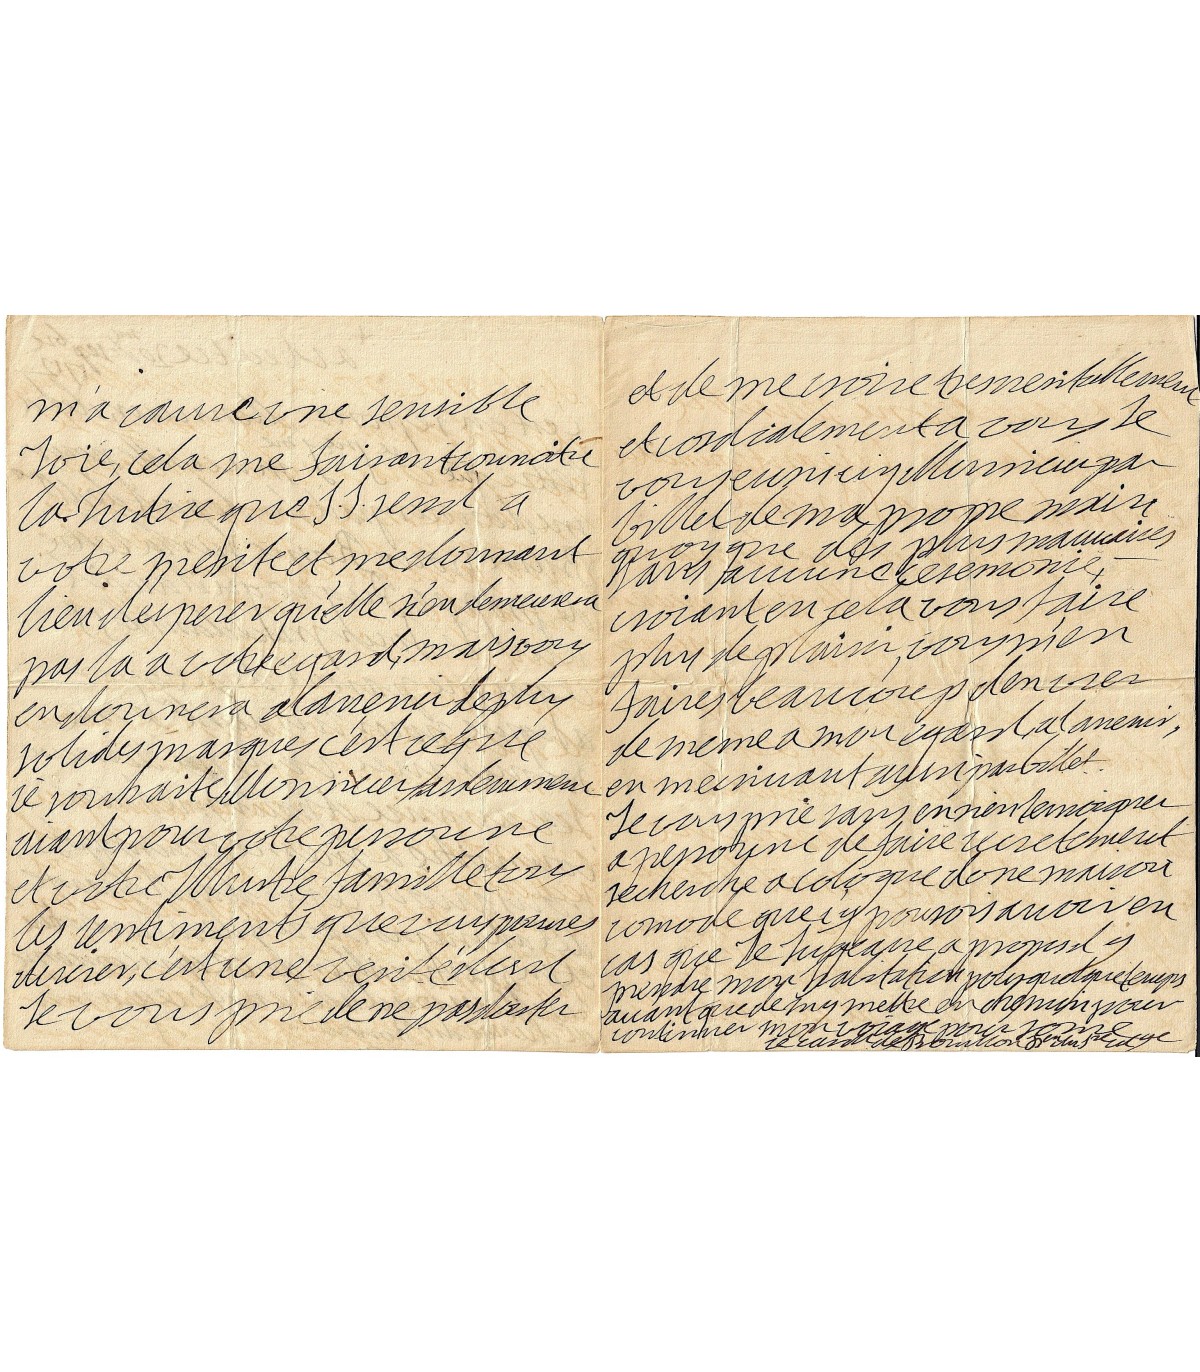 m'a causé une sensible
Joie, cela me faisant connoitre
la Justice que S. S. rend a
votre merite et me donnant
lieu d'esperer qu'elle n'en demeurera
pas la a votre egard, mais vous
en donnera a l'avenir de plus
solides marques c'est ce que
ie souhaite Monsieur ardemment
aiant pour votre personne
et votre Illustre famille tous
les sentiments que vous pouves
desirer, c'est une verité dont
Je vous prie de ne pas douter
et de me croire tres veritablement
et cordialement a vous Je
vous Monsieur par
billet de ma propre main
quoy que des plus mauvaises
sans aucune ceremonie,
croiant en cela vous faire
plus de plaisir, vous m'en
faires beaucoup d'en user
de meme a mon egard, a l'avenir,
en m'ecrivant aussy par billet.
Je vous prie sans en rien temoigner
a personne de faire secretement
recherche a cologne d'une maison
comode que i'y pourois avoir en
cas que Je Jugeasse a propos d'y
prendre mon habitation pour quelque temps
avant que de my mettre en chemin pour
continuer mon voiage pour rome
le card. de Bouillon